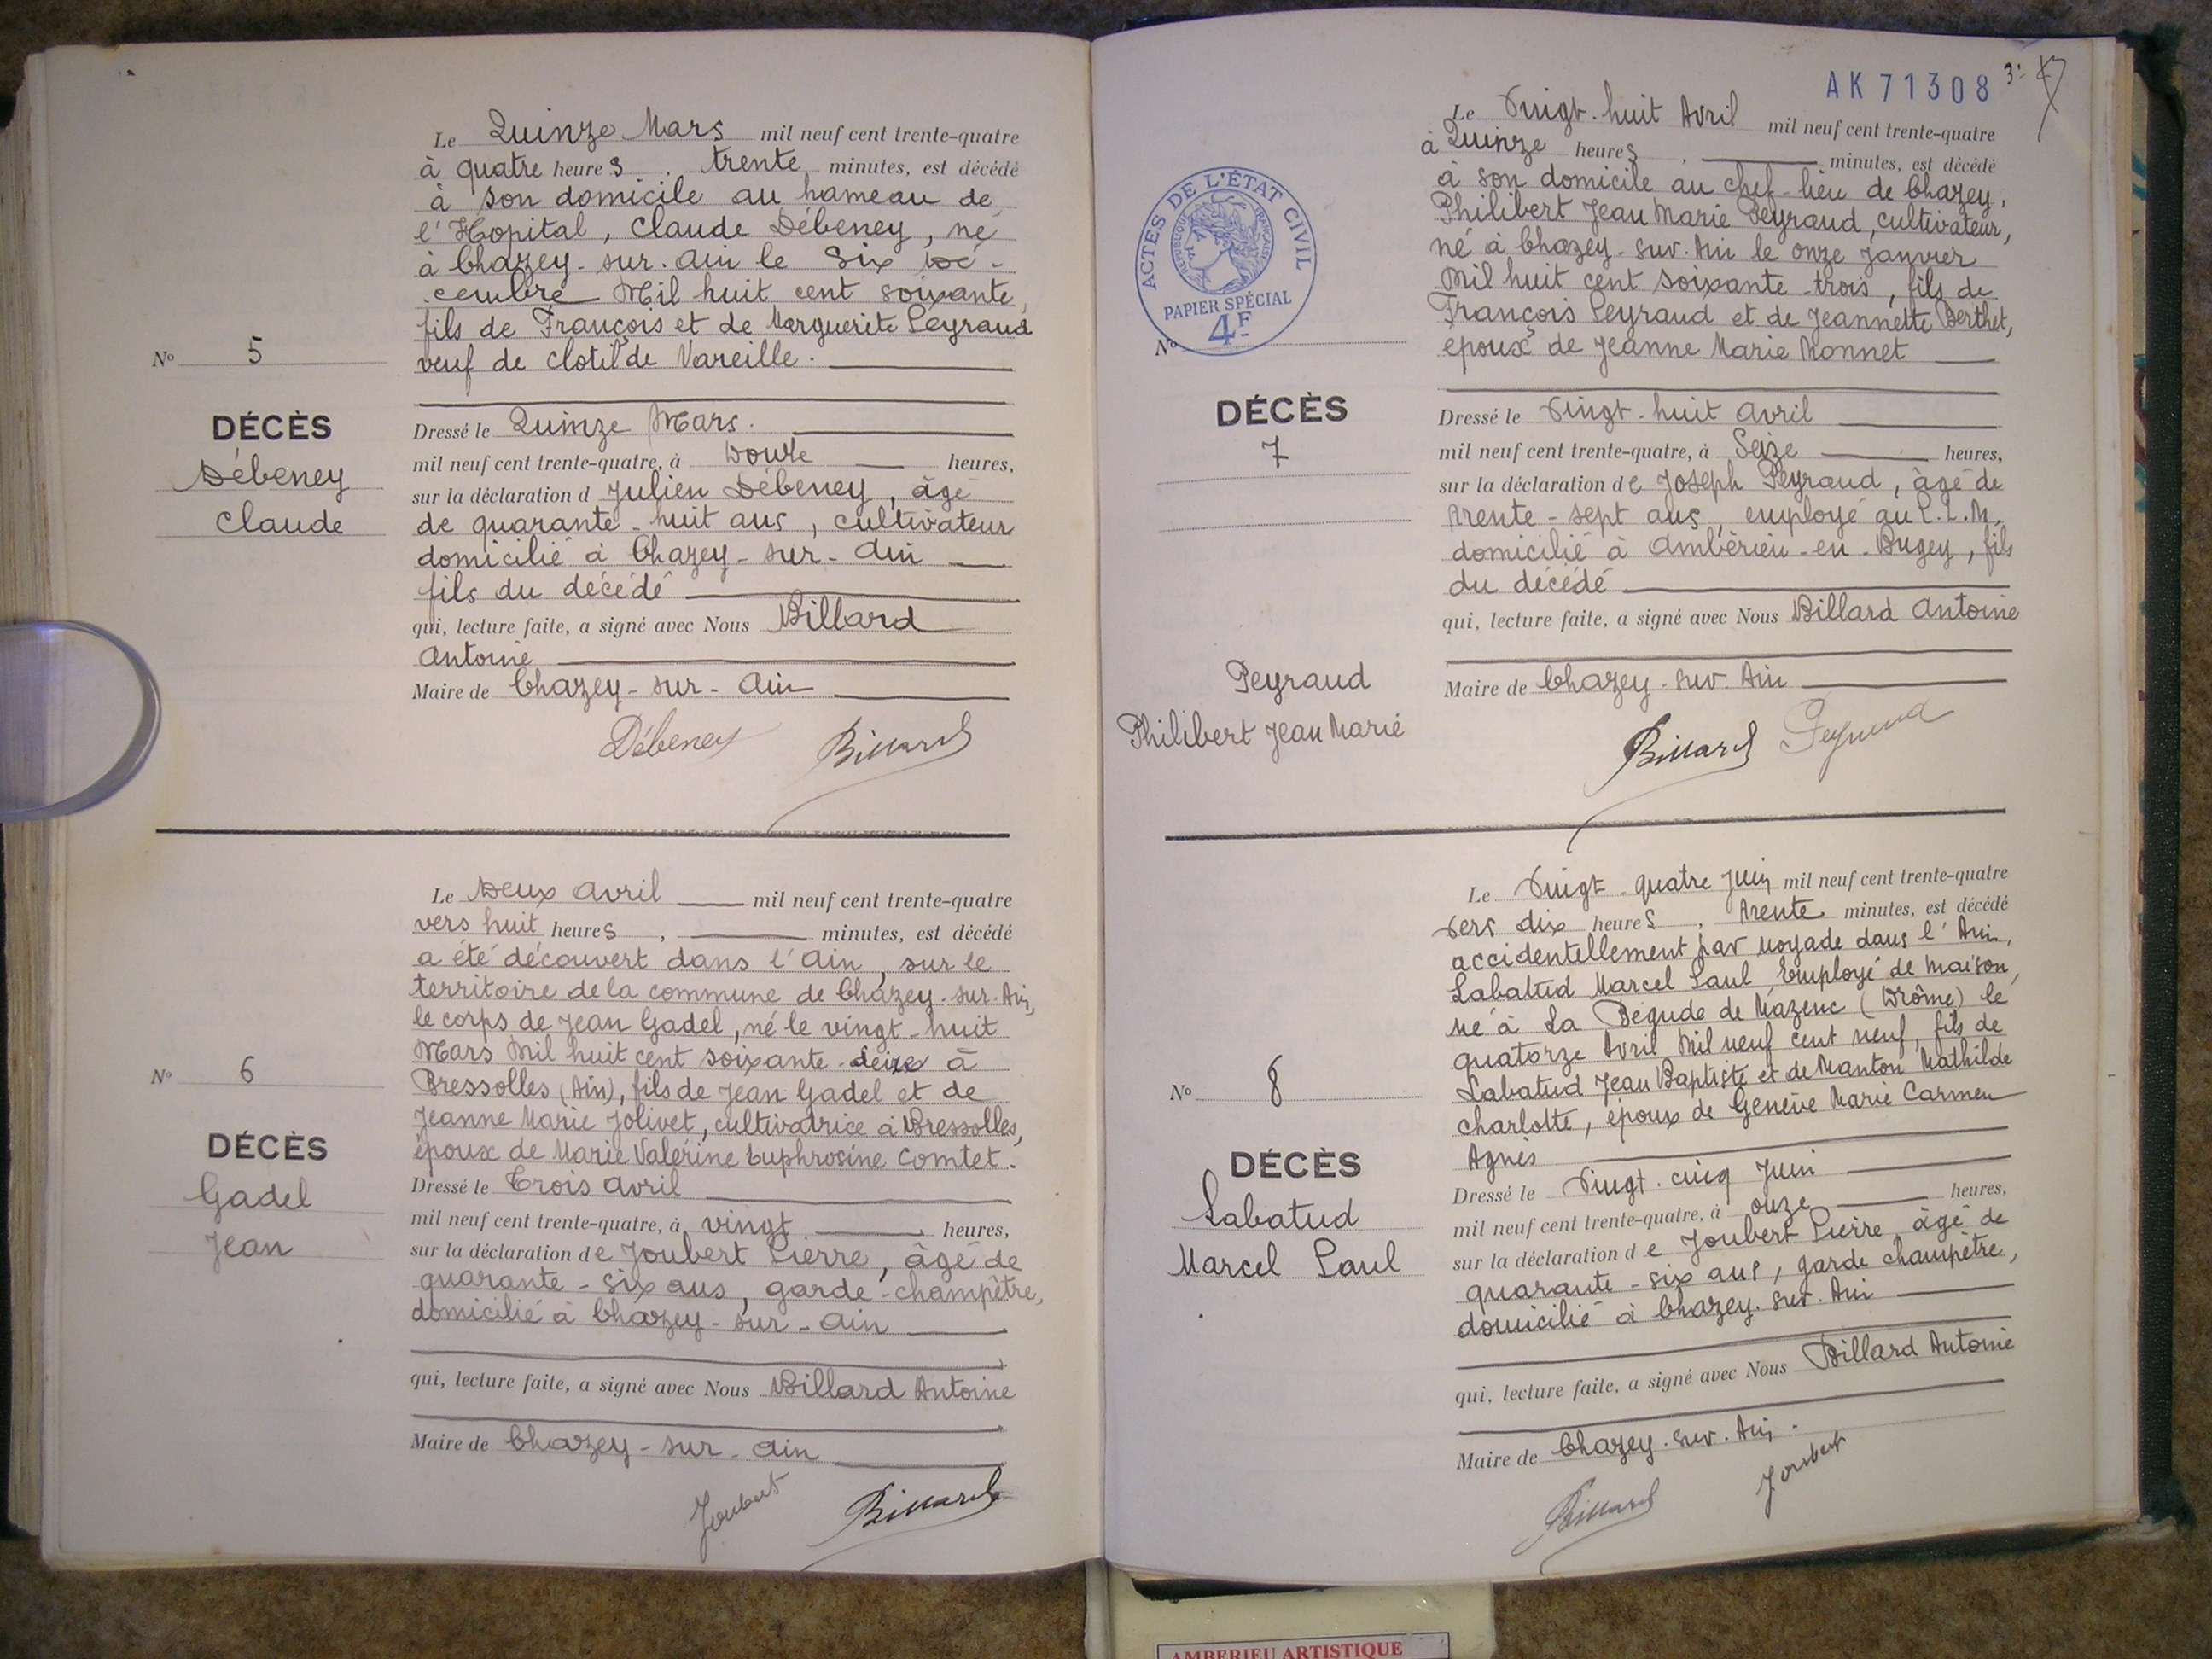 Le Quinze Mars mil neuf cent trente-quatre
à quatre heures . trente minutes, est décédé
à son domicile au hameau de
l'Hopital, Claude Débeney, né
à Chazey-sur-Ain le Six Dé-
cembre Mil huit cent soixante,
fils de François et de Marguerite Peyraud
veuf de Clotilde Vareille.
No 5
DÉCÈS
Débeney
Claude
Dressé le Quinze Mars.
mil neuf cent trente-quatre, à Douze heures,
sur la déclaration d Julien Débeney, âgé
de quarante-huit ans, cultivateur
domicilié à Chazey-sur-Ain
fils du décédé
qui, lecture faite, a signé avec Nous Billard
Antoine
Maire de Chazey-sur-Ain
Débeney Billard
Le Deux Avril mil neuf cent trente-quatre
vers huit heures , minutes, est décédé
a été découvert dans l'Ain, sur le
territoire de la commune de Chazey-sur-Ain,
le corps de Jean Gadel, né le vingt-huit
Mars Mil huit cent soixante-seize à
Bressolles (Ain), fils de Jean Gadel et de
Jeanne Marie Jolivet, cultivatrice à Bressolles,
époux de Marie Valérine Euphrosine Comtet.
No 6
DÉCÈS
Gadel
Jean
Dressé le Trois Avril
mil neuf cent trente-quatre, à vingt heures,
sur la déclaration de Joubert Pierre, âgé de
quarante-six ans, garde-champêtre,
domicilié à Chazey-sur-Ain
qui, lecture faite, a signé avec Nous Billard Antoine
Maire de Chazey-sur-Ain
Joubert Billard
AK 71308
Le Vingt-huit Avril mil neuf cent trente-quatre
à Quinze heures . minutes, est décédé
à son domicile au chef-lieu de Chazey,
Philibert Jean Marie Peyraud, cultivateur,
né à Chazey-sur-Ain le onze Janvier
Mil huit cent soixante-trois, fils de
François Peyraud et de Jeannette Berthet,
époux de Jeanne Marie Monnet
ACTES DE L'ÉTAT CIVIL
RÉPUBLIQUE FRANÇAISE
PAPIER SPÉCIAL
4F
No
DÉCÈS
7
Peyraud
Philibert Jean Marie
Dressé le Vingt-huit Avril
mil neuf cent trente-quatre, à Seize heures,
sur la déclaration de Joseph Peyraud, âgé de
trente-sept ans, employé au P.L.M.
domicilié à Ambérieu-en-Bugey, fils
du décédé
qui, lecture faite, a signé avec Nous Billard Antoine
Maire de Chazey-sur-Ain
Billard Peyraud
Le Vingt-quatre Juin mil neuf cent trente-quatre
vers dix heures , trente minutes, est décédé
accidentellement par noyade dans l'Ain,
Labatud Marcel Paul Employé de maison,
né à La Bégude de Mazenc (Drôme) le
quatorze Avril Mil neuf cent neuf, fils de
Labatud Jean Baptiste et de Manton Mathilde
Charlotte, époux de Genève Marie Carmen
Agnès
No 8
DÉCÈS
Labatud
Marcel Paul
Dressé le Vingt-cinq Juin
mil neuf cent trente-quatre, à onze heures,
sur la déclaration de Joubert Pierre âgé de
quarante-six ans, garde champêtre,
domicilié à Chazey-sur-Ain
qui, lecture faite, a signé avec Nous Billard Antoine
Maire de Chazey-sur-Ain.
Billard Joubert
AMBERIEU ARTISTIQUE